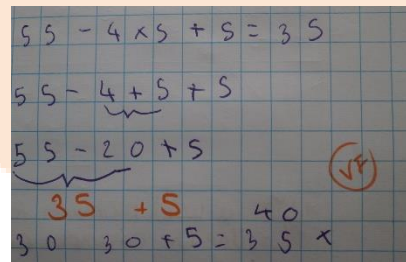 55 - 4 x 5 + 5 = 35
55 - 4 + 5 + 5
55 - 20 + 5
35 + 5
40
30 30 + 5 = 35 x